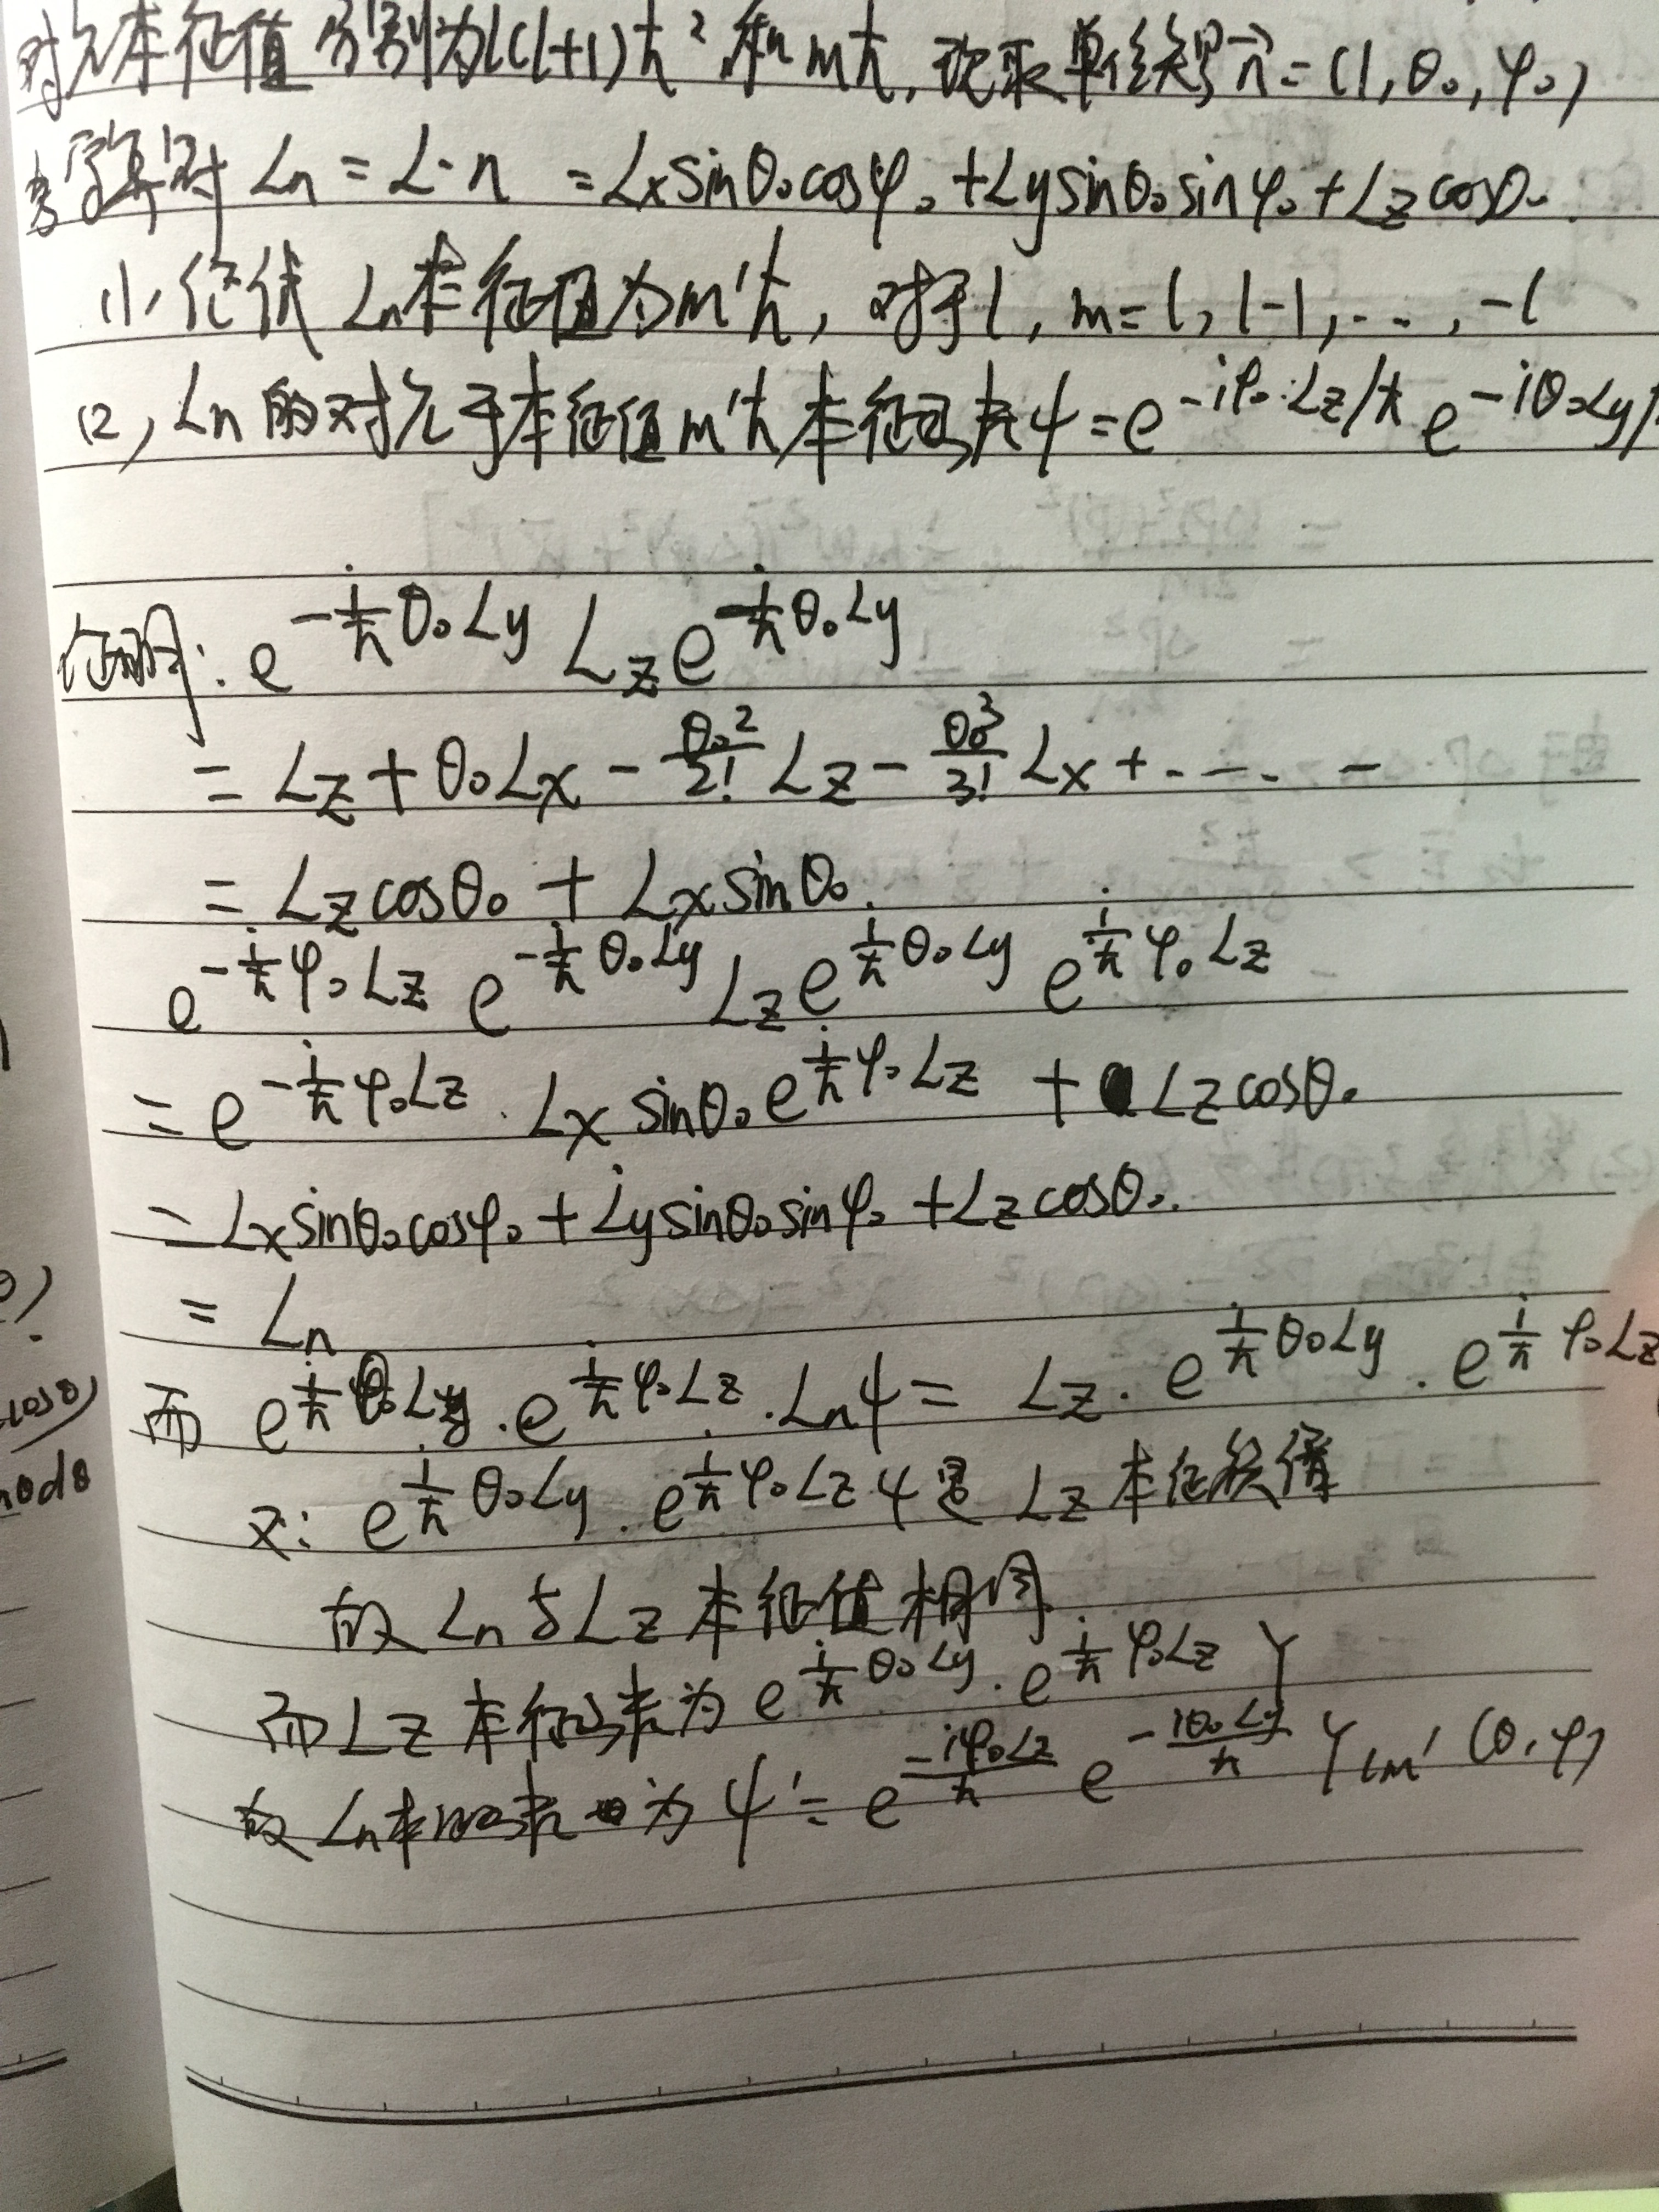 对应本征值分别为l(l+1)ħ² 和 mħ, 现取单位矢量n⃗=(1,θ₀,φ₀)
Ln = L·n = Lx sinθ₀cosφ₀ + Ly sinθ₀ sinφ₀ + Lz cosθ₀
(1) 论证 Ln本征值为m'ħ, 对于l, m=l, l-1, ..., -l
(2) Ln的对应于本征值m'ħ本征函数ψ=e^{-iφ₀·Lz/ħ} e^{-iθ₀Ly/
证明: e^{-i/ħ θ₀Ly} Lz e^{-i/ħ θ₀Ly}
= Lz + θ₀Lx - θ₀²/2! Lz - θ₀³/3! Lx + ......
= Lz cosθ₀ + Lx sinθ₀.
e^{-i/ħ φ₀Lz} e^{-i/ħ θ₀Ly} Lz e^{i/ħ θ₀Ly} e^{i/ħ φ₀Lz}
= e^{-i/ħ φ₀Lz} · Lx sinθ₀ e^{i/ħ φ₀Lz} + Lz cosθ₀
= Lx sinθ₀cosφ₀ + Ly sinθ₀ sinφ₀ + Lz cosθ₀.
= Ln
而 e^{i/ħ θ₀Ly} · e^{i/ħ φ₀Lz} · Lnψ = Lz · e^{i/ħ θ₀Ly} · e^{i/ħ φ₀Lz
又: e^{i/ħ θ₀Ly} · e^{i/ħ φ₀Lz} ψ是 Lz 本征
故 Ln与Lz 本征值相同
而Lz 本征函数为 e^{i/ħ θ₀Ly} · e^{i/ħ φ₀Lz} Y
故 Ln本征函数为 ψ' = e^{-iφ₀Lz/ħ} e^{-iθ₀Ly/ħ} Ylm' (θ,φ)
θ)
cosθ)
nθdθ